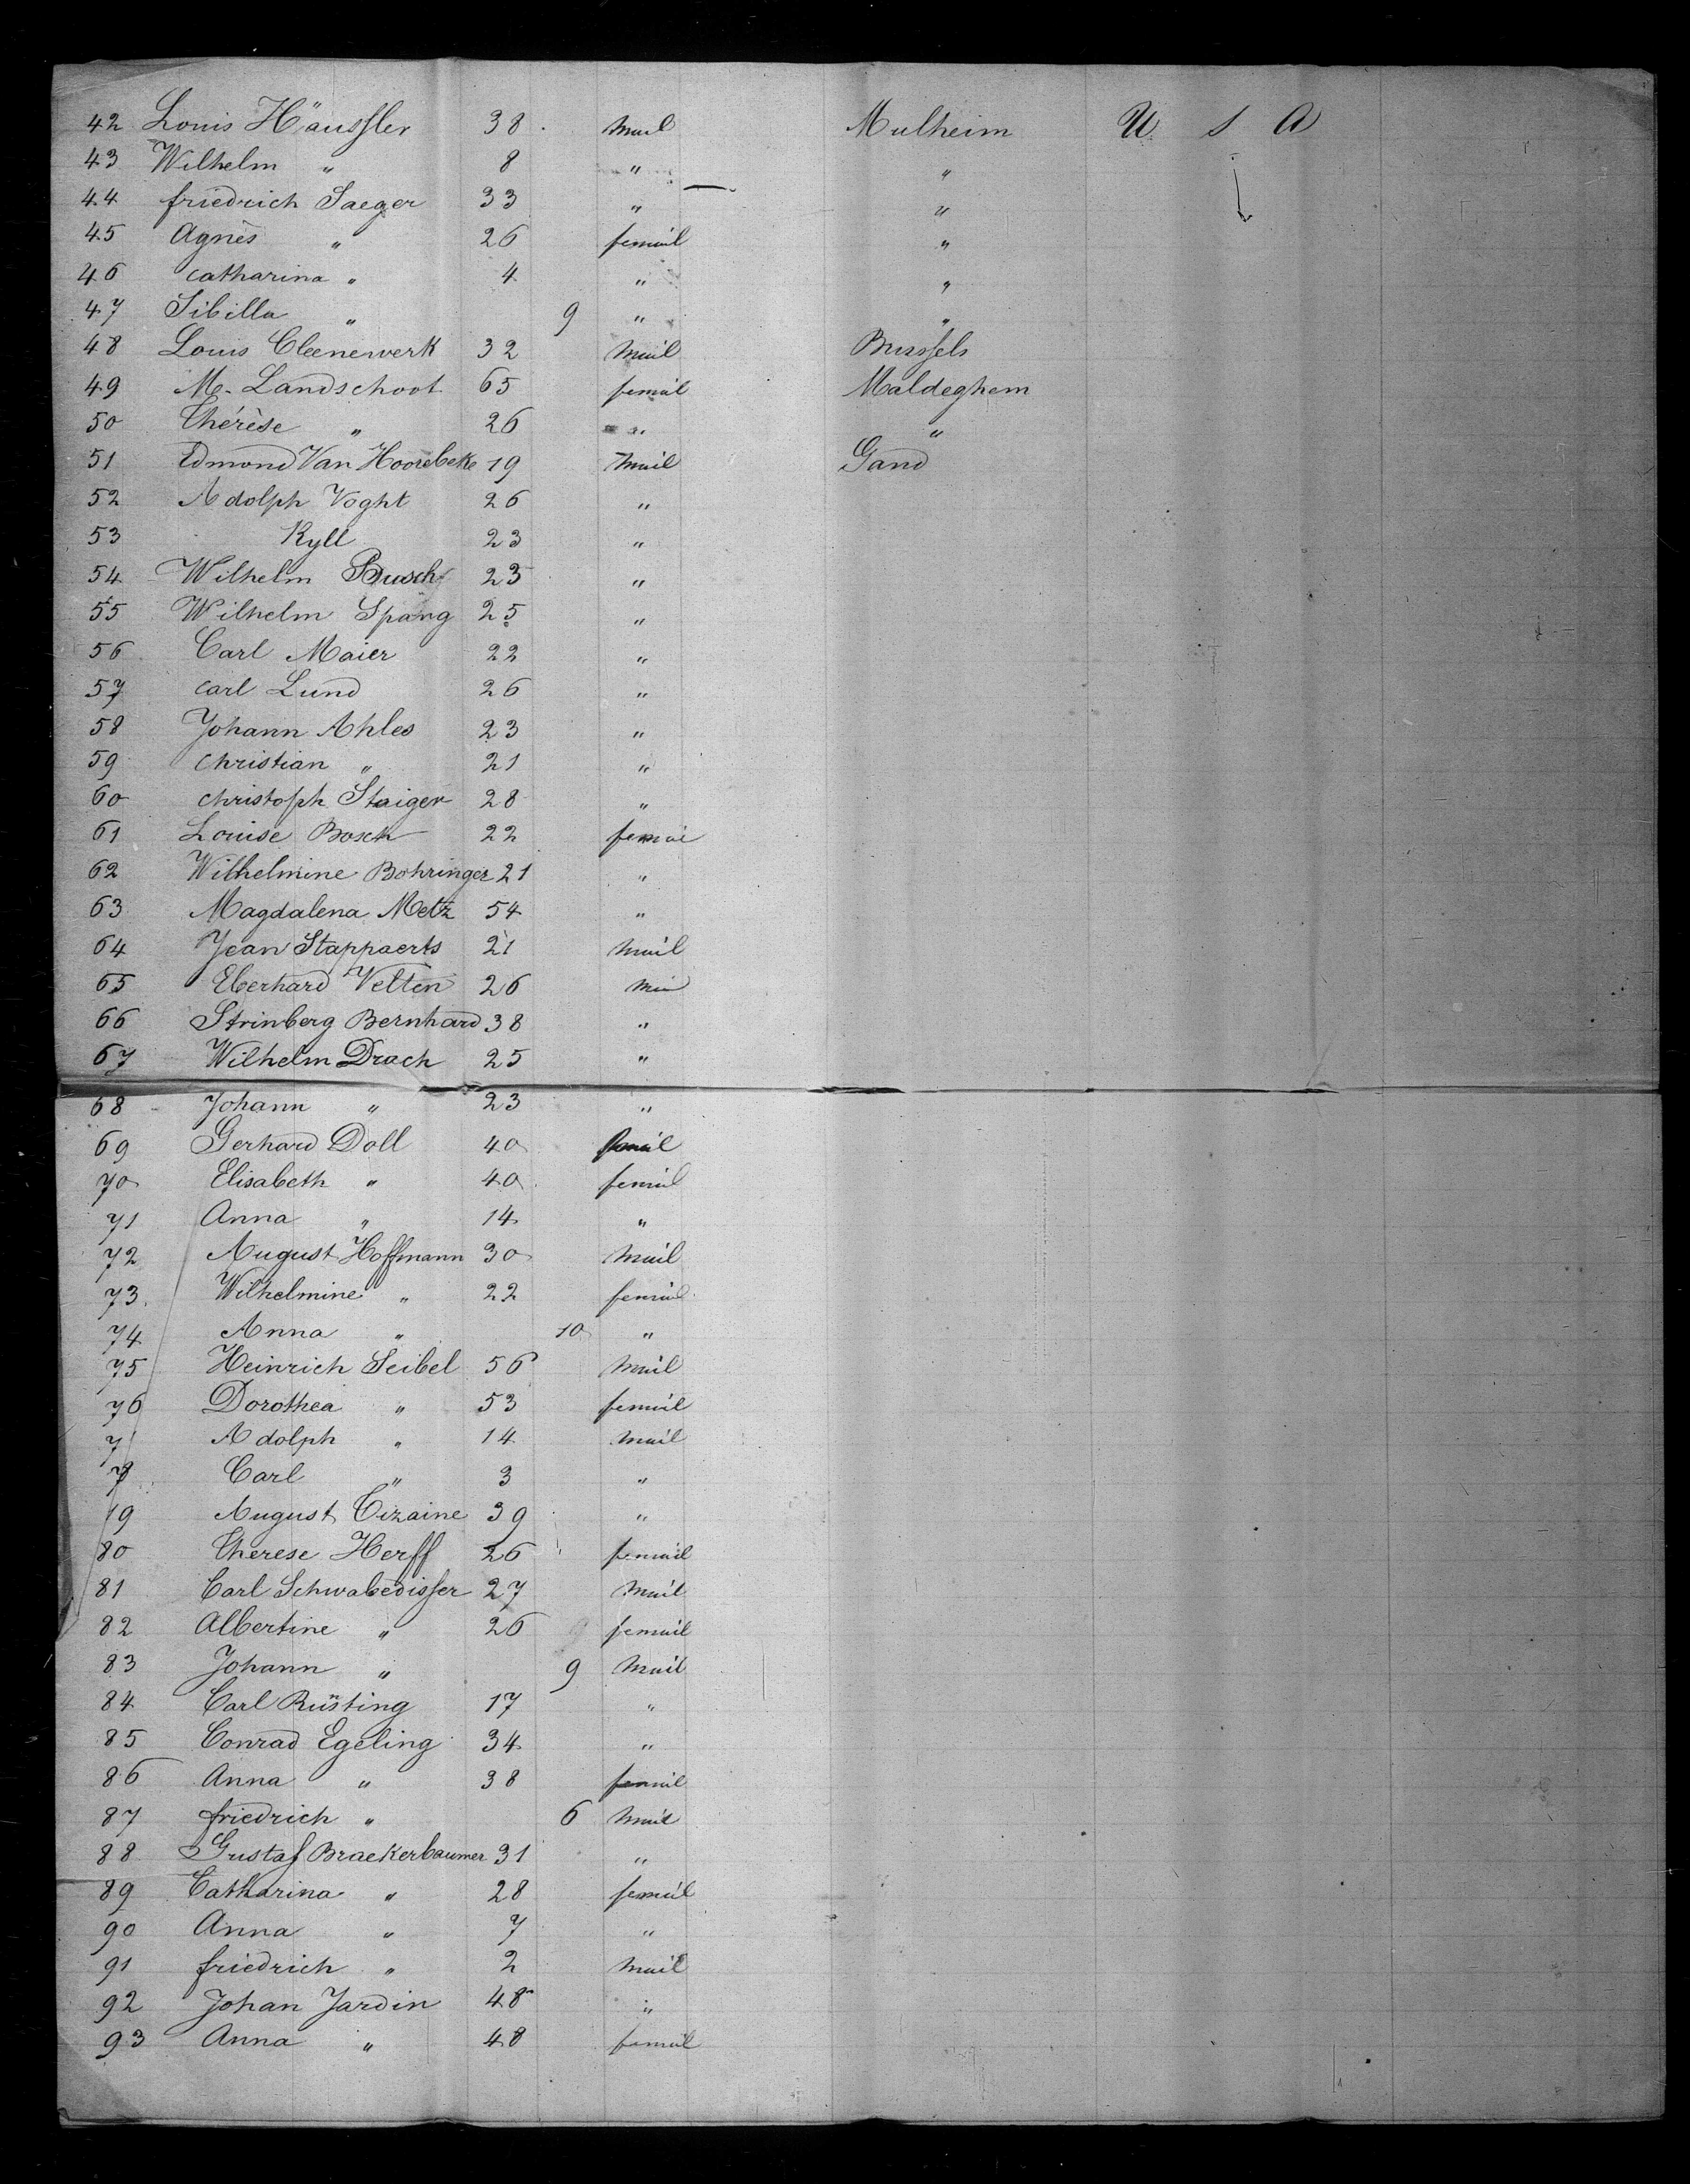 42 Louis Häussler 38 mail Mulheim U S A
43 Wilhelm " 8 " "
44 friedrich Saeger 33 " "
45 Agnès " 26 femail "
46 catharina " 4 " "
47 Sibilla " 9 " "
48 Louis Cleenewerk 32 mail Brussels
49 M. Landschoot 65 femail Maldeghem
50 Thérèse " 26 " "
51 Edmond Van Hoorebeke 19 mail Gand
52 Adolph Voght 26 "
53 Kyll 23 "
54 Wilhelm Busch 23 "
55 Wilhelm Spang 25 "
56 Carl Maier 22 "
57 carl Lund 26 "
58 Johann Ahles 23 "
59 christian " 21 "
60 christoph Staiger 28 "
61 Louise Bosch 22 femai
62 Wilhelmine Bohringer 21 "
63 Magdalena Metz 54 "
64 Jean Stappaerts 21 mail
65 Eberhard Velten 26
66 Strinberg Bernhard 38 "
67 Wilhelm Drach 25 "
68 Johann " 23 "
69 Gerhard Doll 40
70 Elisabeth " 40 femail
71 Anna " 14 "
72 August Hoffmann 30 mail
73 Wilhelmine " 22 femail
74 Anna " 10 "
75 Heinrich Seibel 56 mail
76 Dorothea " 53 femail
7 Adolph " 14 mail
78 Carl " 3 "
19 August Tizaine 39 "
80 Therese Herff 26 femail
81 Carl Schwabedisser 27 mail
82 Albertine " 26 femail
83 Johann " 9 mail
84 Carl Rüsting 17 "
85 Conrad Egeling 34 "
86 Anna " 38 femail
87 friedrich " 6 mail
88 Gustaf Braekerbaumer 31 "
89 Catharina " 28 femail
90 Anna " 7 "
91 friedrich " 2 mail
92 Johan Jardin 48 "
93 Anna " 48 femail